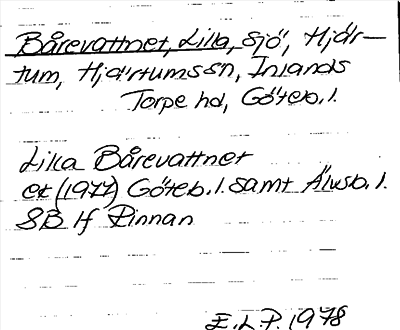 Bårevattnet, Lilla, sjö, Hjär-
tum, Hjärtumssn, Inlands
Torpe hd, Göteb. l.
Lilla Bårevattnet
ek (1977) Göteb. l. samt Älvsb. l.
8B 1f Pinnan
E.L.P. 1978